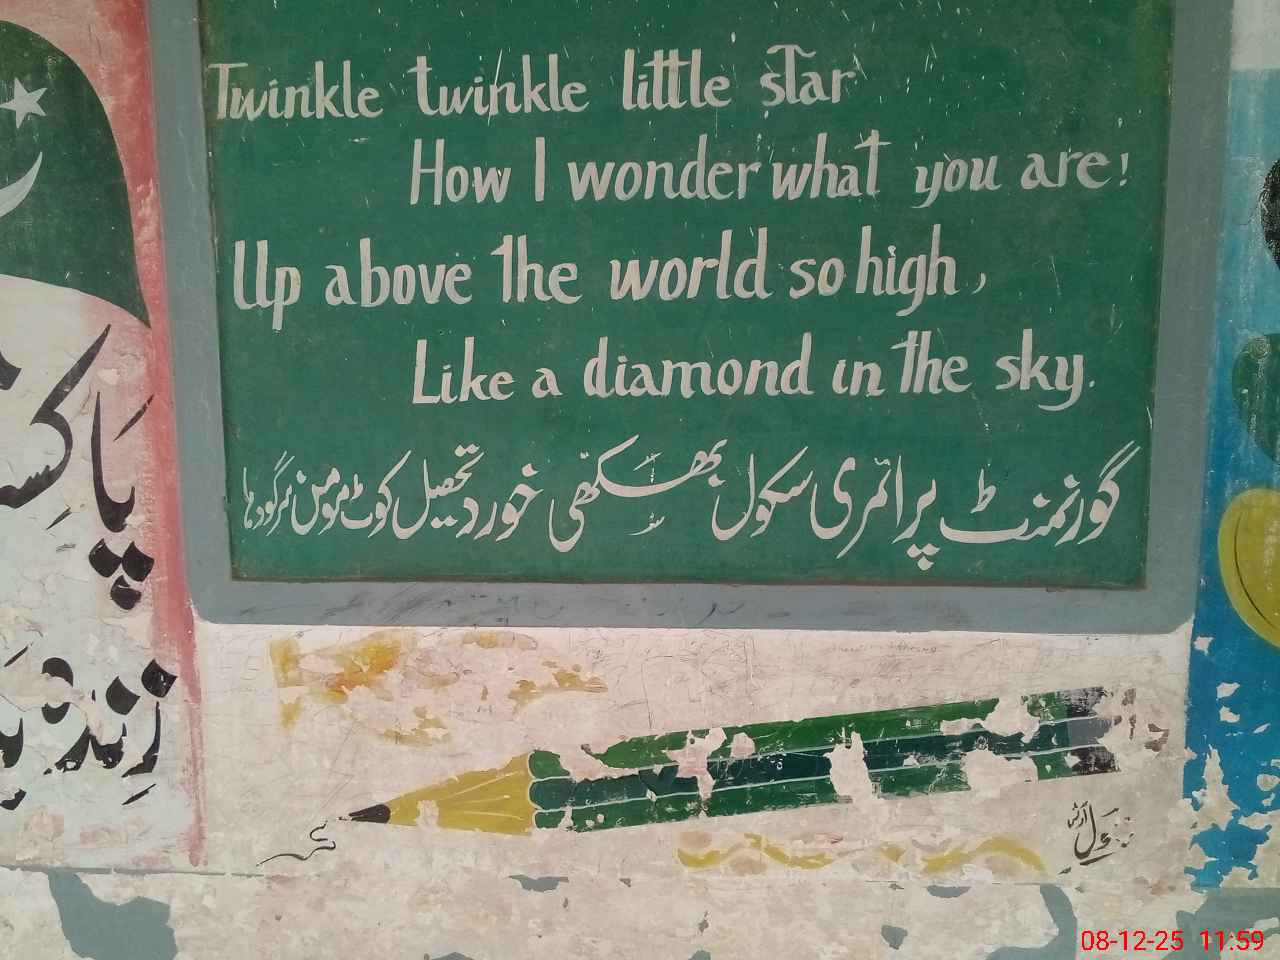 Twinkle twinkle little star
How I wonder what you are!
Up above the world so high,
Like a diamond in the sky.
گورنمنٹ پرائمری سکول بھکھی خورد تحصیل کوٹ مومن سرگودہا
پاکس
زندہ
08-12-25 11:59